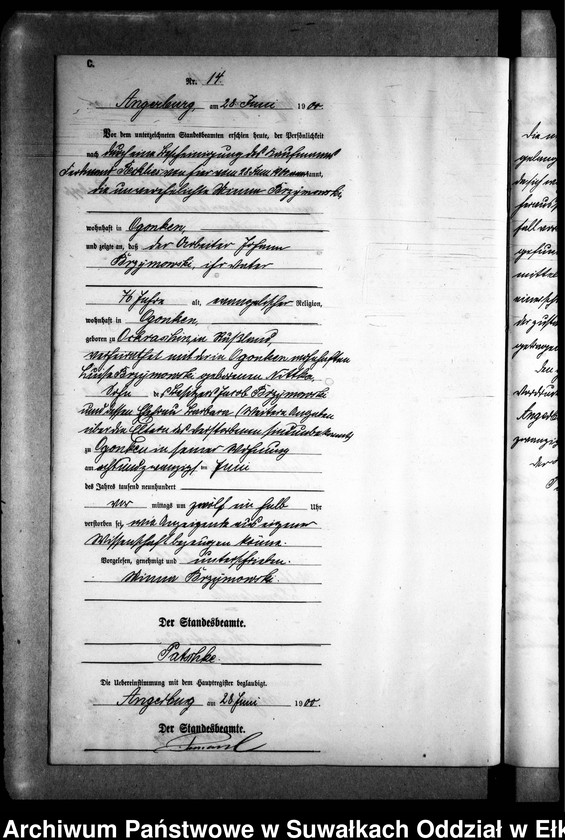 C.
Nr. 14.
Angerburg am 28 Juni 1900.
Vor dem unterzeichneten Standesbeamten erschien heute, der Persönlichkeit
nach durch eine Bescheinigung des Kaufmanns
vom 28 Juni 1900 kannt,
die unverehelichte Minna Krzymowski,
wohnhaft in Ogonken,
und zeigte an, daß der Arbeiter Johann
Krzymowski, ihr Vater
76 Jahre alt, evangelischer Religion,
wohnhaft in Ogonken,
geboren zu in Rußland,
verheirathet mit der in Ogonken wohnhaften
Luise Krzymowski geborenen Nittka,
Sohn des Besitzers Jacob Krzymowski
und dessen Ehefrau Barbara (Weitere Angaben
über die Eltern des Verstorbenen sind unbekannt)
zu Ogonken in seiner Wohnung
am achtundzwanzigsten Juni
des Jahres tausend neunhundert
vor mittags um zwölf ein halb Uhr
verstorben sei, wie Anzeigende aus eigener
Wissenschaft bezeugen könne.
Vorgelesen, genehmigt und unterschrieben.
Minna Krzymowski
Der Standesbeamte.
Patschke.
Die Uebereinstimmung mit dem Hauptregister beglaubigt.
Angerburg am 28 Juni 1900.
Der Standesbeamte.
Archiwum Państwowe w Suwałkach Oddział w Ełk